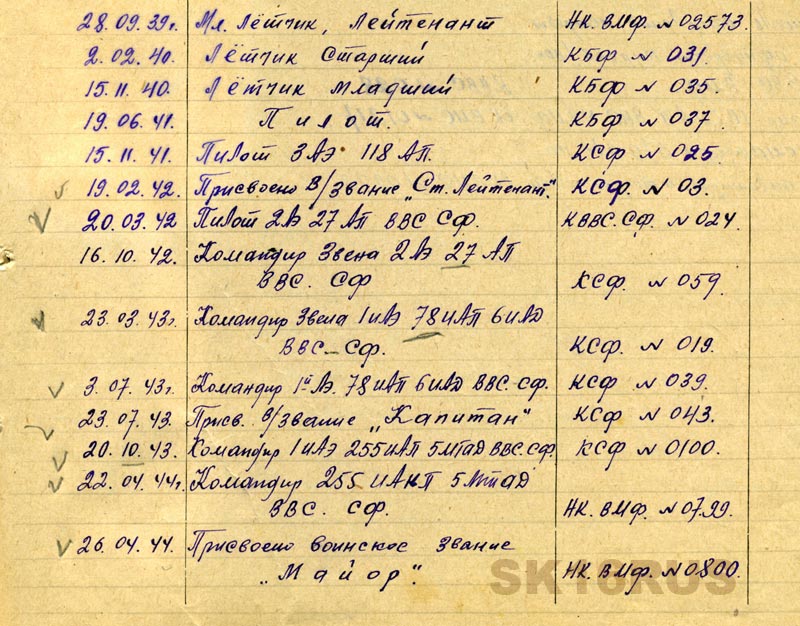 28.09.39г. Мл. Лётчик, Лейтенант НК. ВМФ. № 02573.
2.02.40. Лётчик Старший КБФ № 031.
15.11.40. Лётчик Младший КБФ № 035.
19.06.41. Пилот. КБФ № 037
15.11.41. Пилот 3 АЭ 118 АП. КСФ. № 025
19.02.42. Присвоено в/звание „Ст. Лейтенант". КСФ. № 03.
20.03.42 Пилот 2 АЭ 27 АП ВВС СФ. КВВС. СФ. № 024.
16.10.42. Командир Звена 2 АЭ 27 АП
ВВС. СФ КСФ. № 059.
23.03.43г. Командир Звена 1 иАЭ 78 иАП 6 иАД
ВВС-СФ. КСФ. № 019.
3.07.43г. Командир 1й АЭ. 78 иАП 6 иАД ВВС-СФ. КСФ № 039.
23.07.43. Присв. в/звание „Капитан" КСФ № 043.
20.10.43. Командир 1 иАЭ 255 иАП 5 МтАД ВВС. СФ. КСФ № 0100.
22.04.44г. Командир 255 иАКП 5 МтАД
ВВС. СФ. НК. ВМФ. № 0799.
26.04.44. Присвоено воинское звание
„Майор". НК. ВМФ. № 0800.
SK16RUS